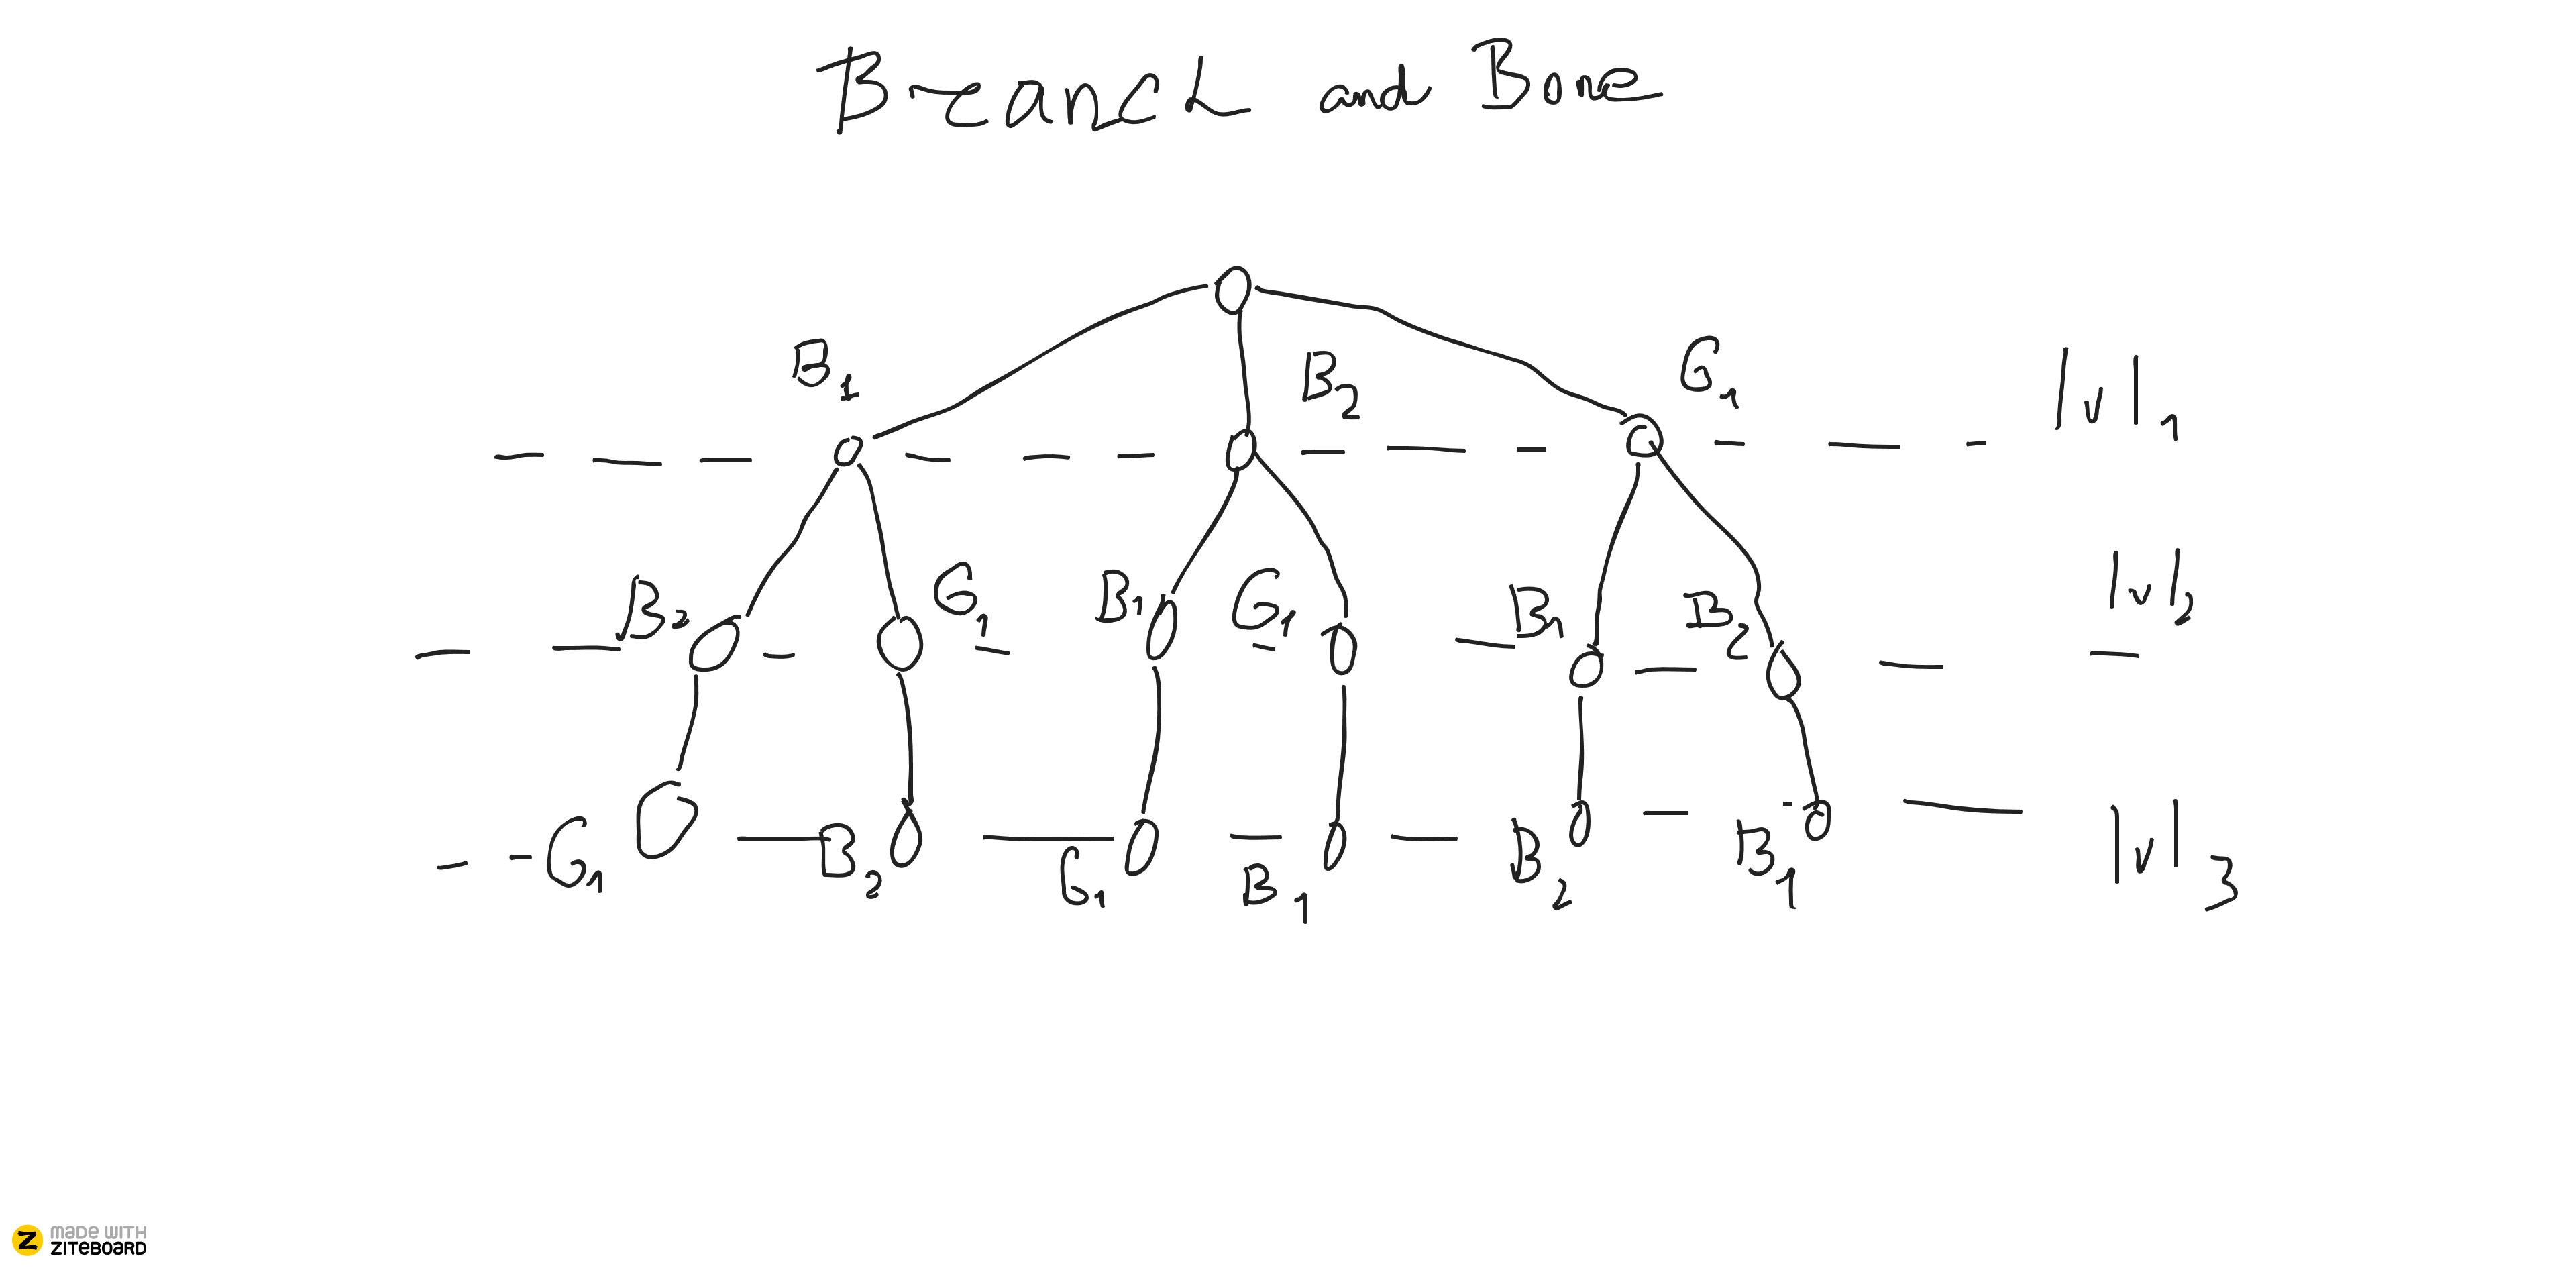 Branch and Bone
B1 B2 G1 lvl1
B2 G1 B1 G1 B1 B2 lvl2
G1 B2 G1 B1 B2 B1 lvl3
MADE WITH
ZITEBOARD